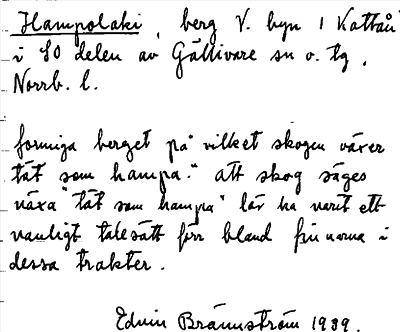 Hampolaki, berg V. byn i Kattån
i SO delen av Gällivare sn o. tg,
Norrb. l.
formiga berget på "vilket skogen växer
tät som hampa." att skog säges
växa "tät som hampa" lär ha varit ett
vanligt talesätt förr bland finnarna i
dessa trakter.
Edvin Brännström 1939.